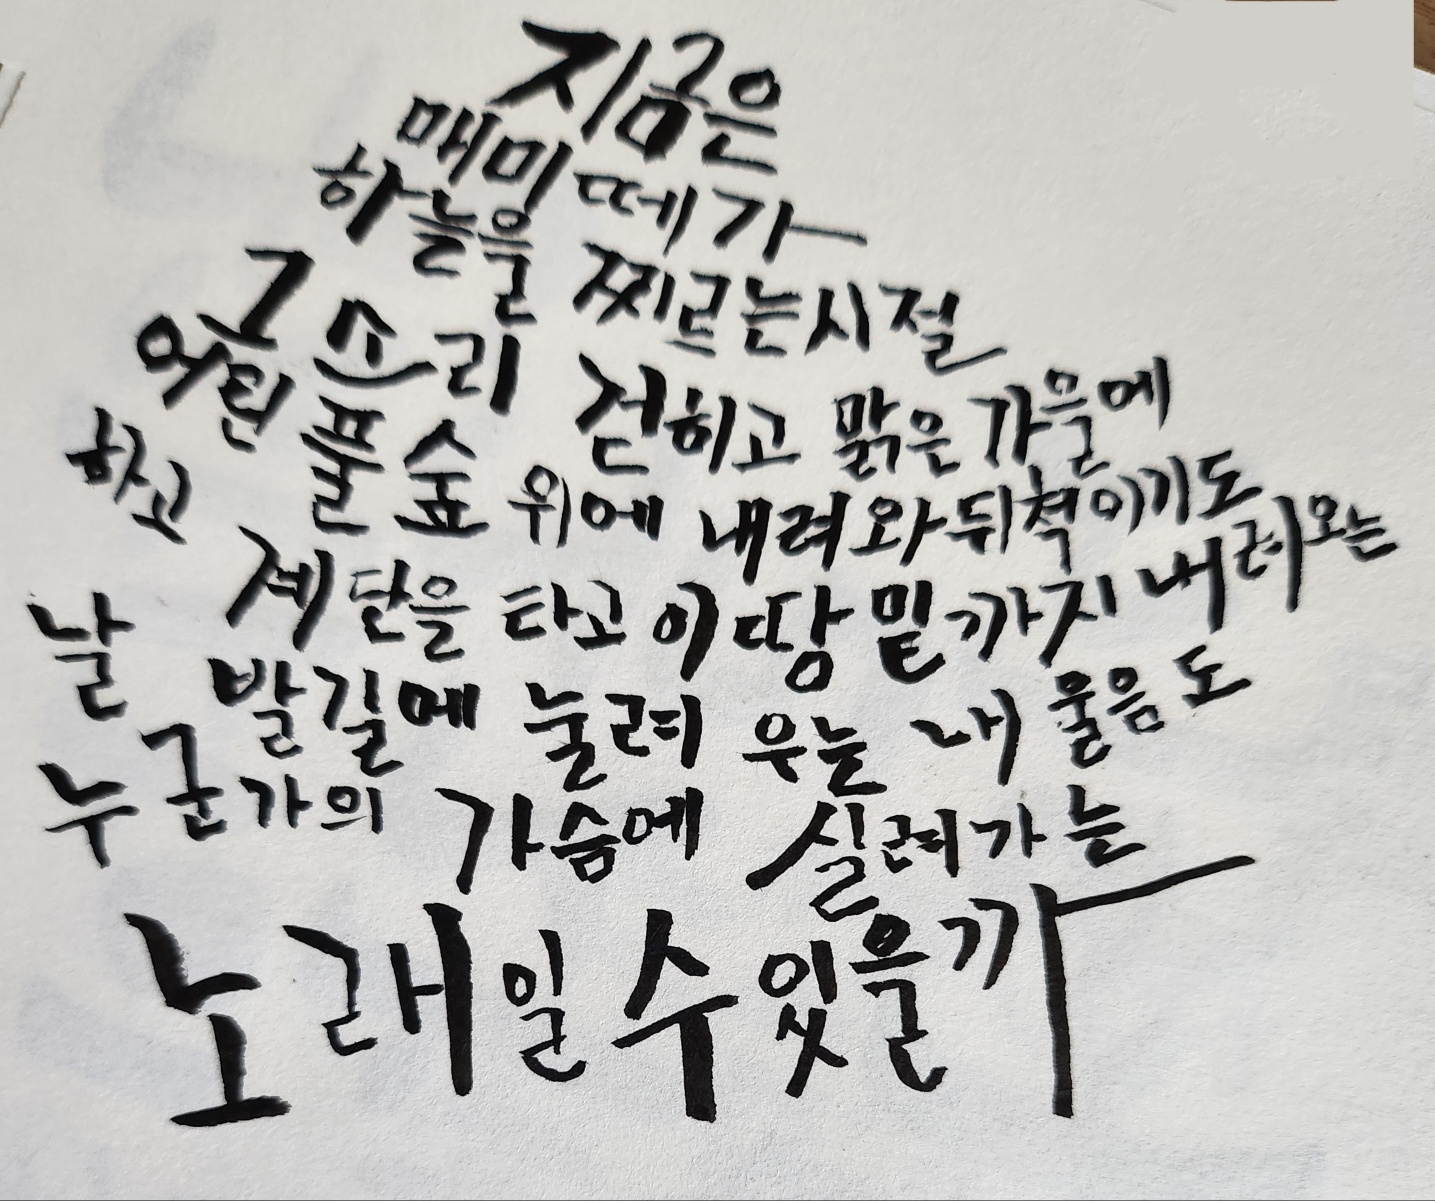 지금은
매미 떼가
하늘을 찌르는 시절
그 소리 걷히고 맑은 가을에
어린 풀숲 위에 내려와 뒤척이기도
하고 계단을 타고 이 땅 밑까지 내려오는
날 발길에 눌려 우는 내 울음도
누군가의 가슴에 실려가는
노래일 수 있을까